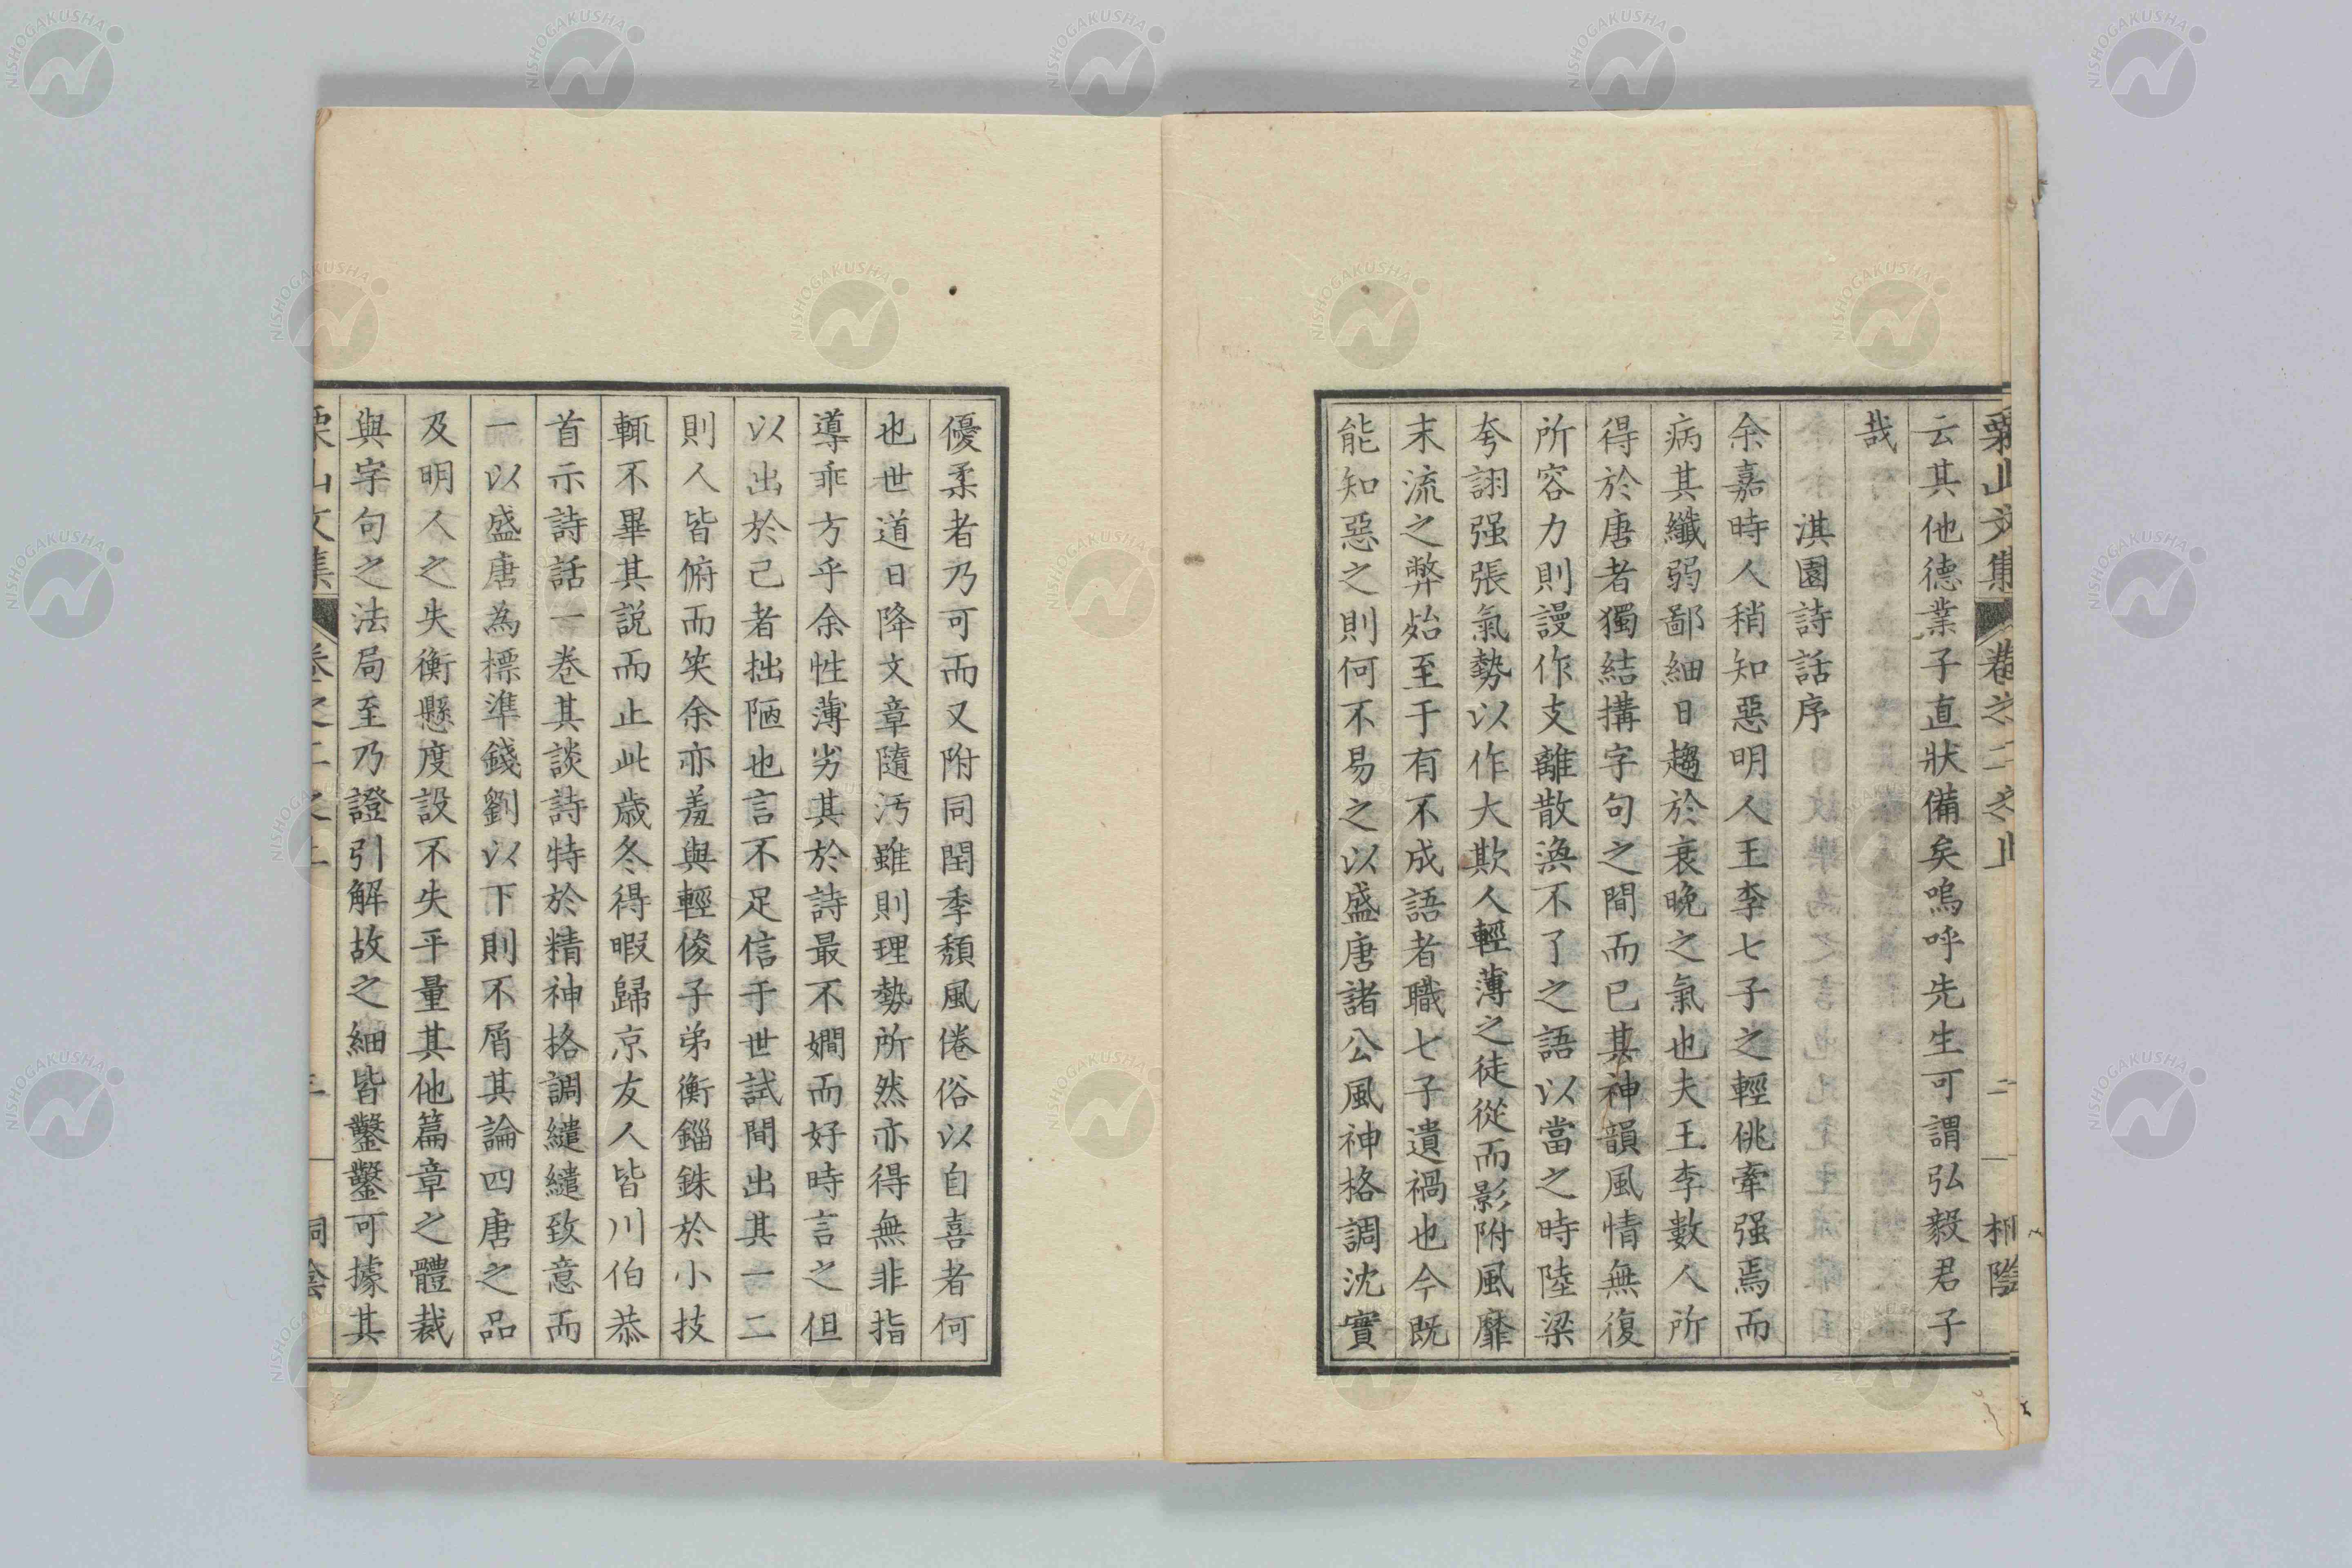 栗山文集 卷之二之上 二 桐陰
云其他德業子直狀備矣嗚呼先生可謂弘毅君子
哉
淇園詩話序
余嘉時人稍知惡明人王李七子之輕佻牽强焉而
病其纖弱鄙細日趨於衰晚之氣也夫王李數人所
得於唐者獨結搆字句之間而已其神韻風情無復
所容力則謾作支離散渙不了之語以當之時陸梁
夸詡强張氣勢以作大欺人輕薄之徒從而影附風靡
末流之弊始至于有不成語者職七子遺禍也今既
能知惡之則何不易之以盛唐諸公風神格調沈實
優柔者乃可而又附同閏季頹風倦俗以自喜者何
也世道日降文章隨汚雖則理勢所然亦得無非指
導乖方乎余性薄劣其於詩最不嫺而好時言之但
以出於己者拙陋也言不足信于世試間出其一二
則人皆俯而笑余亦羞與輕俊子弟衡錙銖於小技
輒不畢其説而止此歳冬得暇歸京友人皆川伯恭
首示詩話一卷其談詩特於精神格調繾繾致意而
一以盛唐為標準錢劉以下則不屑其論四唐之品
及明人之失衡懸度設不失平量其他篇章之體裁
與字句之法局至乃證引解故之細皆鑿鑿可據其
栗山文集 卷之二之上 三 桐陰
NISHOGAKUSHA